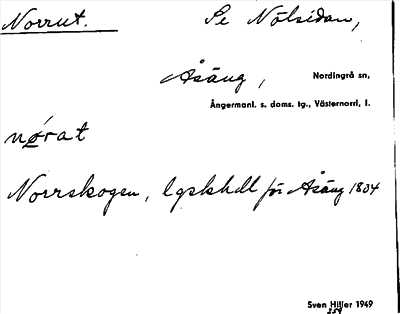 Norrut. Se Nölsidan,
Åsäng, Nordingrå sn,
Ångermanl. s. doms. tg., Västernorrl, l.
nørat
Norrskogen, lgskhdl för Åsäng 1804
Sven Hiller 1949
259